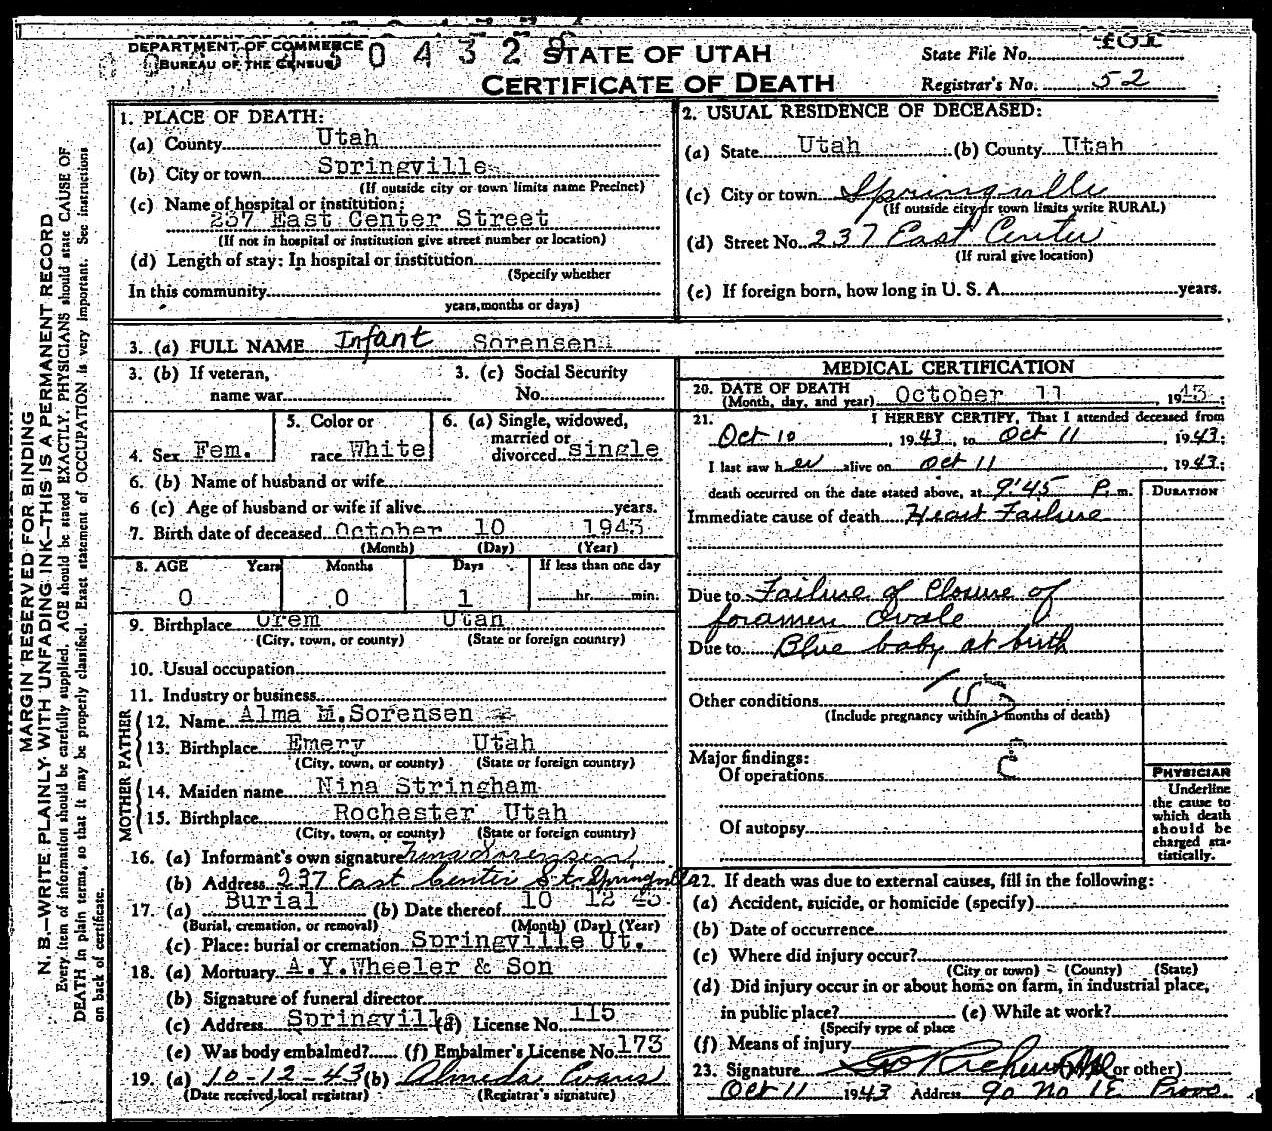 DEPARTMENT OF COMMERCE
BUREAU OF THE CENSUS
0 4 3 2 9
STATE OF UTAH
CERTIFICATE OF DEATH
State File No.
Registrar's No. 52
MARGIN RESERVED FOR BINDING
N. B.—WRITE PLAINLY WITH UNFADING INK—THIS IS A PERMANENT RECORD
Every item of information should be carefully supplied. AGE should be stated EXACTLY. PHYSICIANS should state CAUSE OF
DEATH in plain terms, so that it may be properly classified. Exact statement of OCCUPATION is very important. See instructions
on back of certificate.
1. PLACE OF DEATH:
(a) County Utah
(b) City or town Springville
(If outside city or town limits name Precinct)
(c) Name of hospital or institution:
237 East Center Street
(If not in hospital or institution give street number or location)
(d) Length of stay: In hospital or institution
(Specify whether
In this community
years, months or days)
2. USUAL RESIDENCE OF DECEASED:
(a) State Utah (b) County Utah
(c) City or town Springville
(If outside city or town limits write RURAL)
(d) Street No. 237 East Center
(If rural give location)
(e) If foreign born, how long in U. S. A. years.
3. (a) FULL NAME Infant Sorensen
3. (b) If veteran, 3. (c) Social Security
name war No.
4. Sex Fem. 5. Color or race White 6. (a) Single, widowed, married or divorced single
6. (b) Name of husband or wife
6 (c) Age of husband or wife if alive years.
7. Birth date of deceased October 10 1943
(Month) (Day) (Year)
8. AGE Years Months Days If less than one day
0 0 1 hr. min.
9. Birthplace Orem Utah
(City, town, or county) (State or foreign country)
10. Usual occupation
11. Industry or business
FATHER
12. Name Alma M. Sorensen
13. Birthplace Emery Utah
(City, town, or county) (State or foreign country)
MOTHER
14. Maiden name Nina Stringham
15. Birthplace Rochester Utah
(City, town, or county) (State or foreign country)
16. (a) Informant's own signature Sorensen
(b) Address 237 East Center St. Springville
17. (a) Burial (b) Date thereof 10 12 43
(Burial, cremation, or removal) (Month) (Day) (Year)
(c) Place: burial or cremation Springville Ut.
18. (a) Mortuary A.Y.Wheeler & Son
(b) Signature of funeral director
(c) Address Springville (d) License No. 115
(e) Was body embalmed? (f) Embalmer's License No. 173
19. (a) 10-12-43 (b) Almeda Evans
(Date received local registrar) (Registrar's signature)
MEDICAL CERTIFICATION
20. DATE OF DEATH
(Month, day, and year) October 11, 1943;
21. I HEREBY CERTIFY, That I attended deceased from
Oct 10, 1943, to Oct 11 1943;
I last saw her alive on Oct 11, 1943;
death occurred on the date stated above, at 9:45 P. m.
DURATION
Immediate cause of death Heart Failure
Due to Failure of Closure of
foramen Ovale
Due to Blue baby at birth
Other conditions
(Include pregnancy within 3 months of death)
Major findings:
Of operations
Of autopsy
PHYSICIAN
Underline
the cause to
which death
should be
charged sta-
tistically.
22. If death was due to external causes, fill in the following:
(a) Accident, suicide, or homicide (specify)
(b) Date of occurrence
(c) Where did injury occur?
(City or town) (County) (State)
(d) Did injury occur in or about home on farm, in industrial place,
in public place? (e) While at work?
(Specify type of place
(f) Means of injury
23. Signature (or other)
Oct 11 1943 Address 90 No 1 E Provo